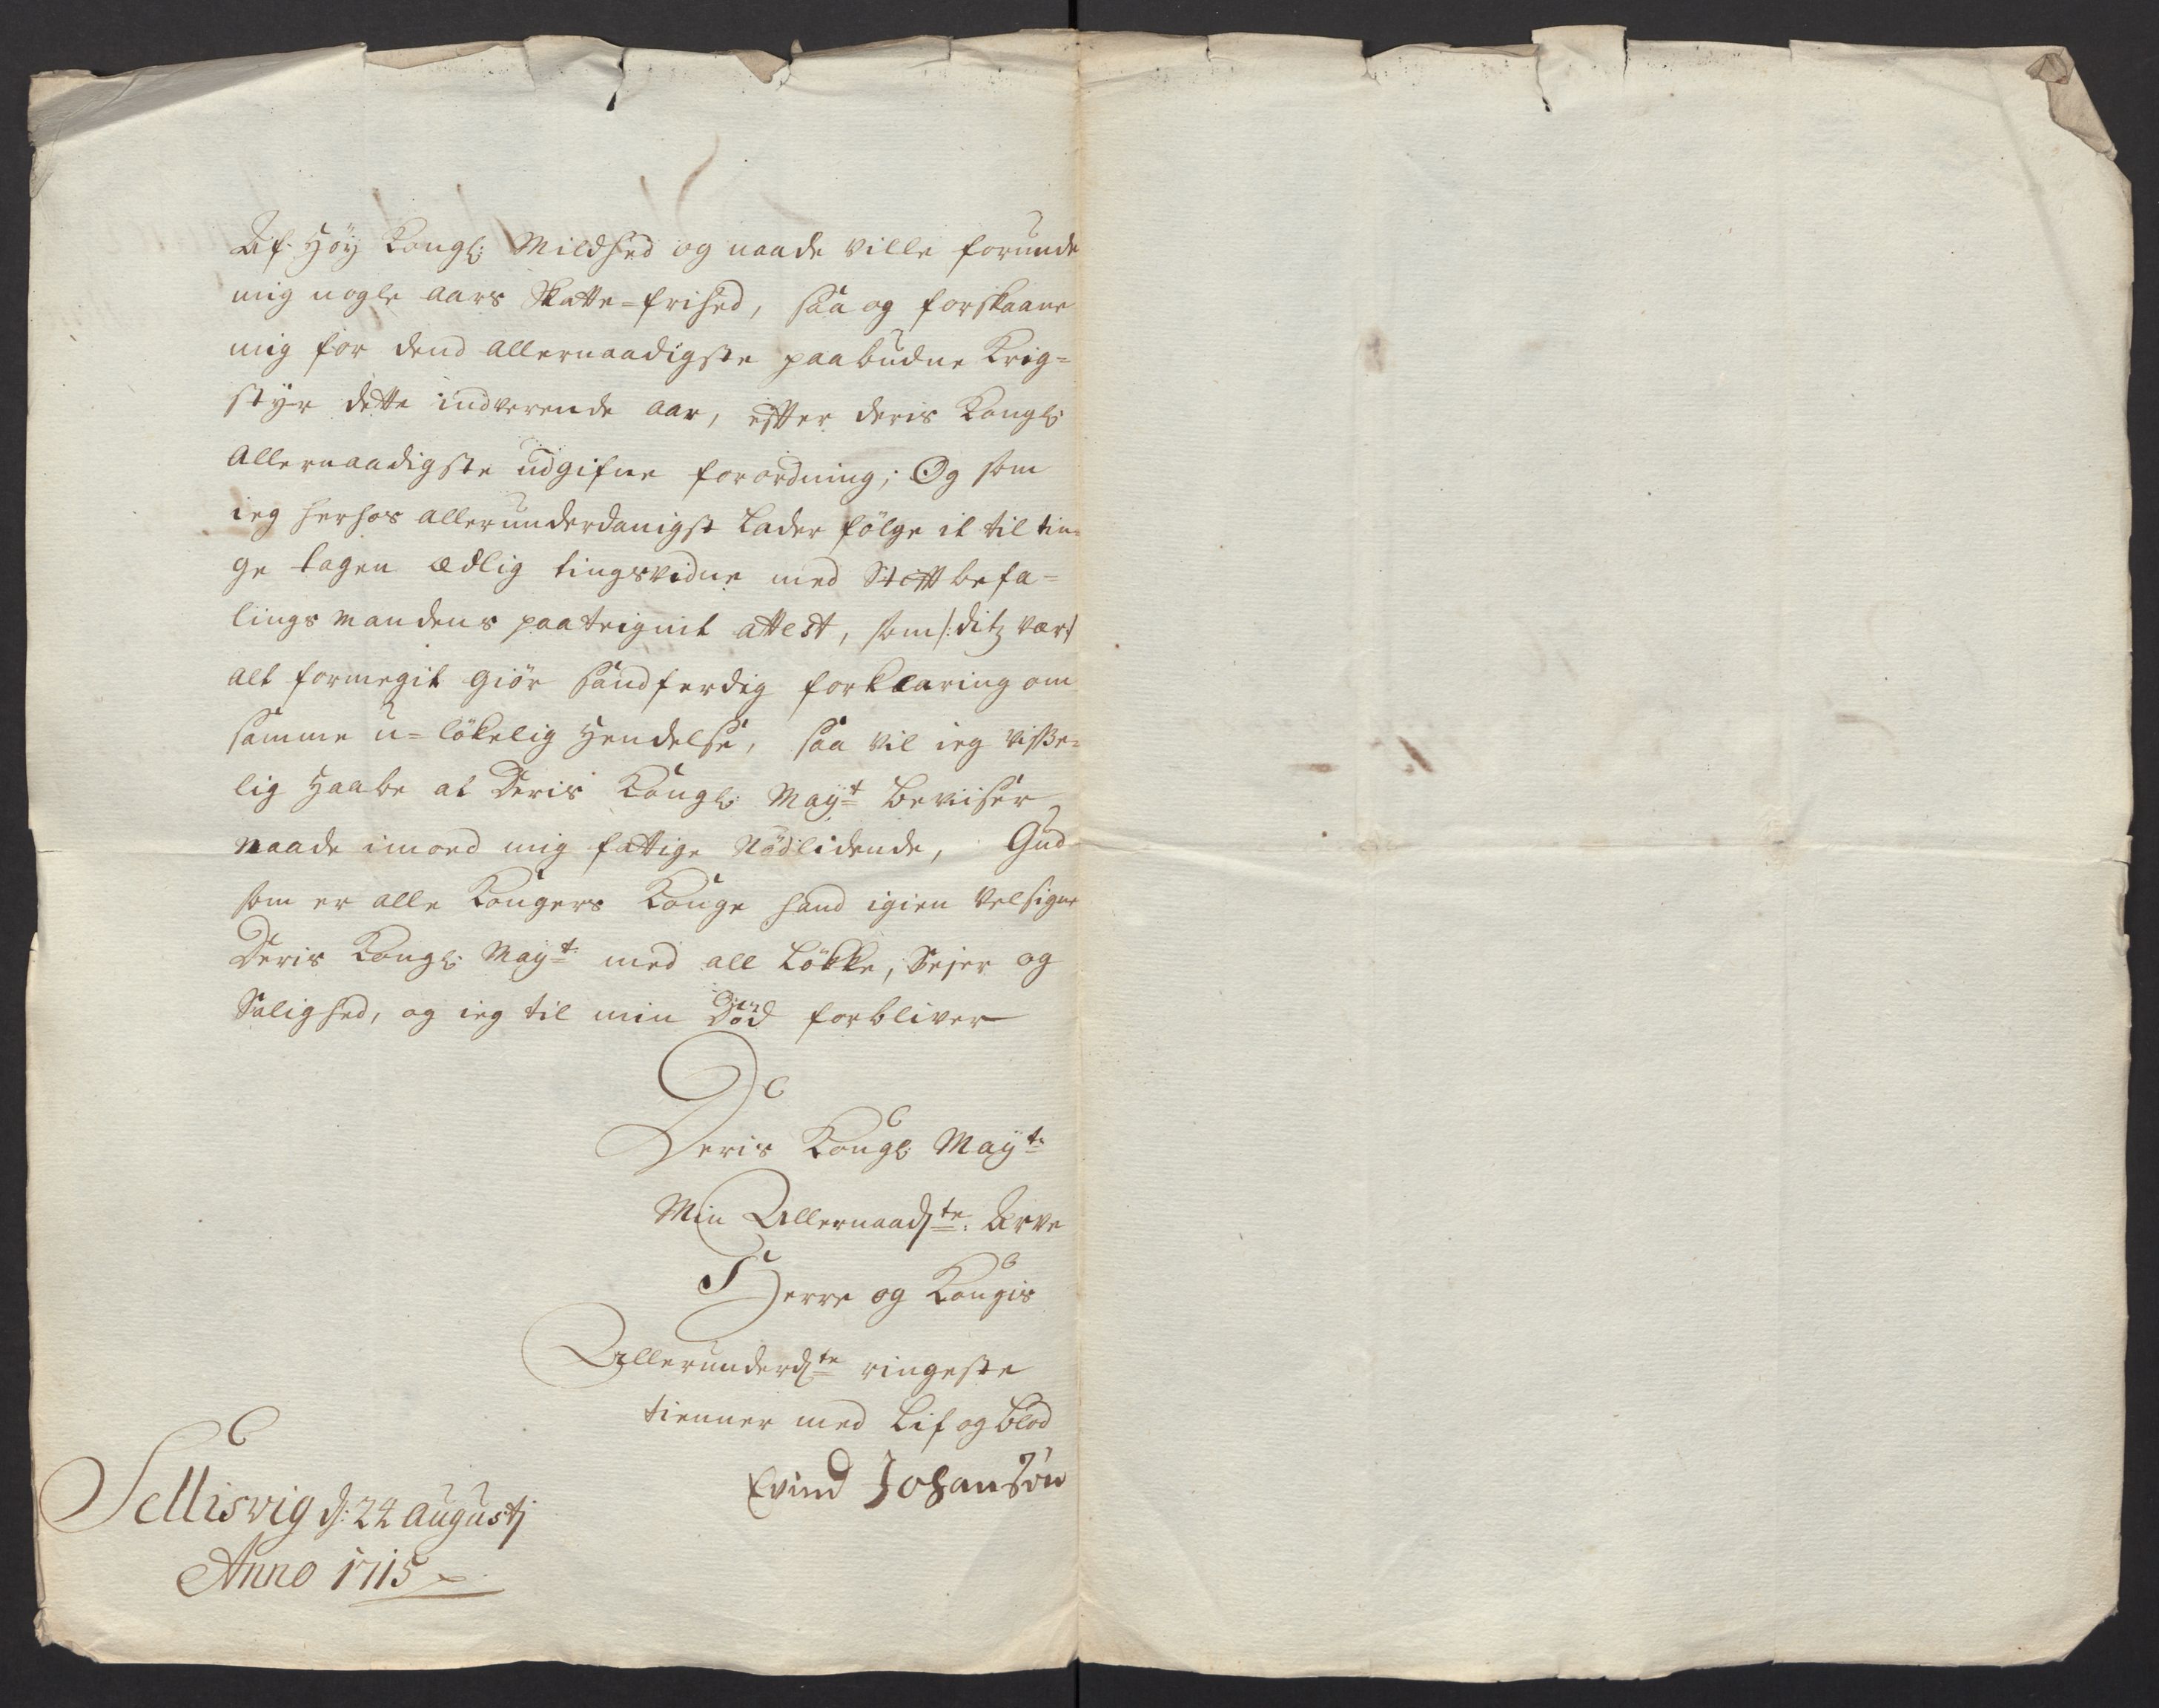 Af Høy Kongl: Mildhed og naade ville forunde
mig nogle aars Skatte=frihed, saa og forskaane
mig for dend allernaadigste paabudne Krig=
styr dette indverende aar, efter deris Kongl:
allernaadigste udgifne forordning; Og som
ieg herhos allerunderdanigst lader følge it til tin=
ge tagen ædlig tingsvidne med Stiftbefa=
lings mandens paateignit attest, som /: ditz vær/
alt formegit giør sandferdig forklaring om
samme u=løkelig Hendelse, saa vil ieg visse=
lig Haabe at Deris Kongl: Mayt beviser
naade imod mig fattige Nødlidende, Gud
som er alle Kongers Konge hand igien velsigne
Deris Kongl: Mayt: med all Løkke, Sejer og
Salighed, og ieg til min Død forbliver
Deris Kongl: Mayts
Min Allernaadste: Arve
Herre og Kongis
Allerunderdte ringeste
tienner med Lif og blod
Evind Johansøn
Sellisvig d: 24 augustj
Anno 1715